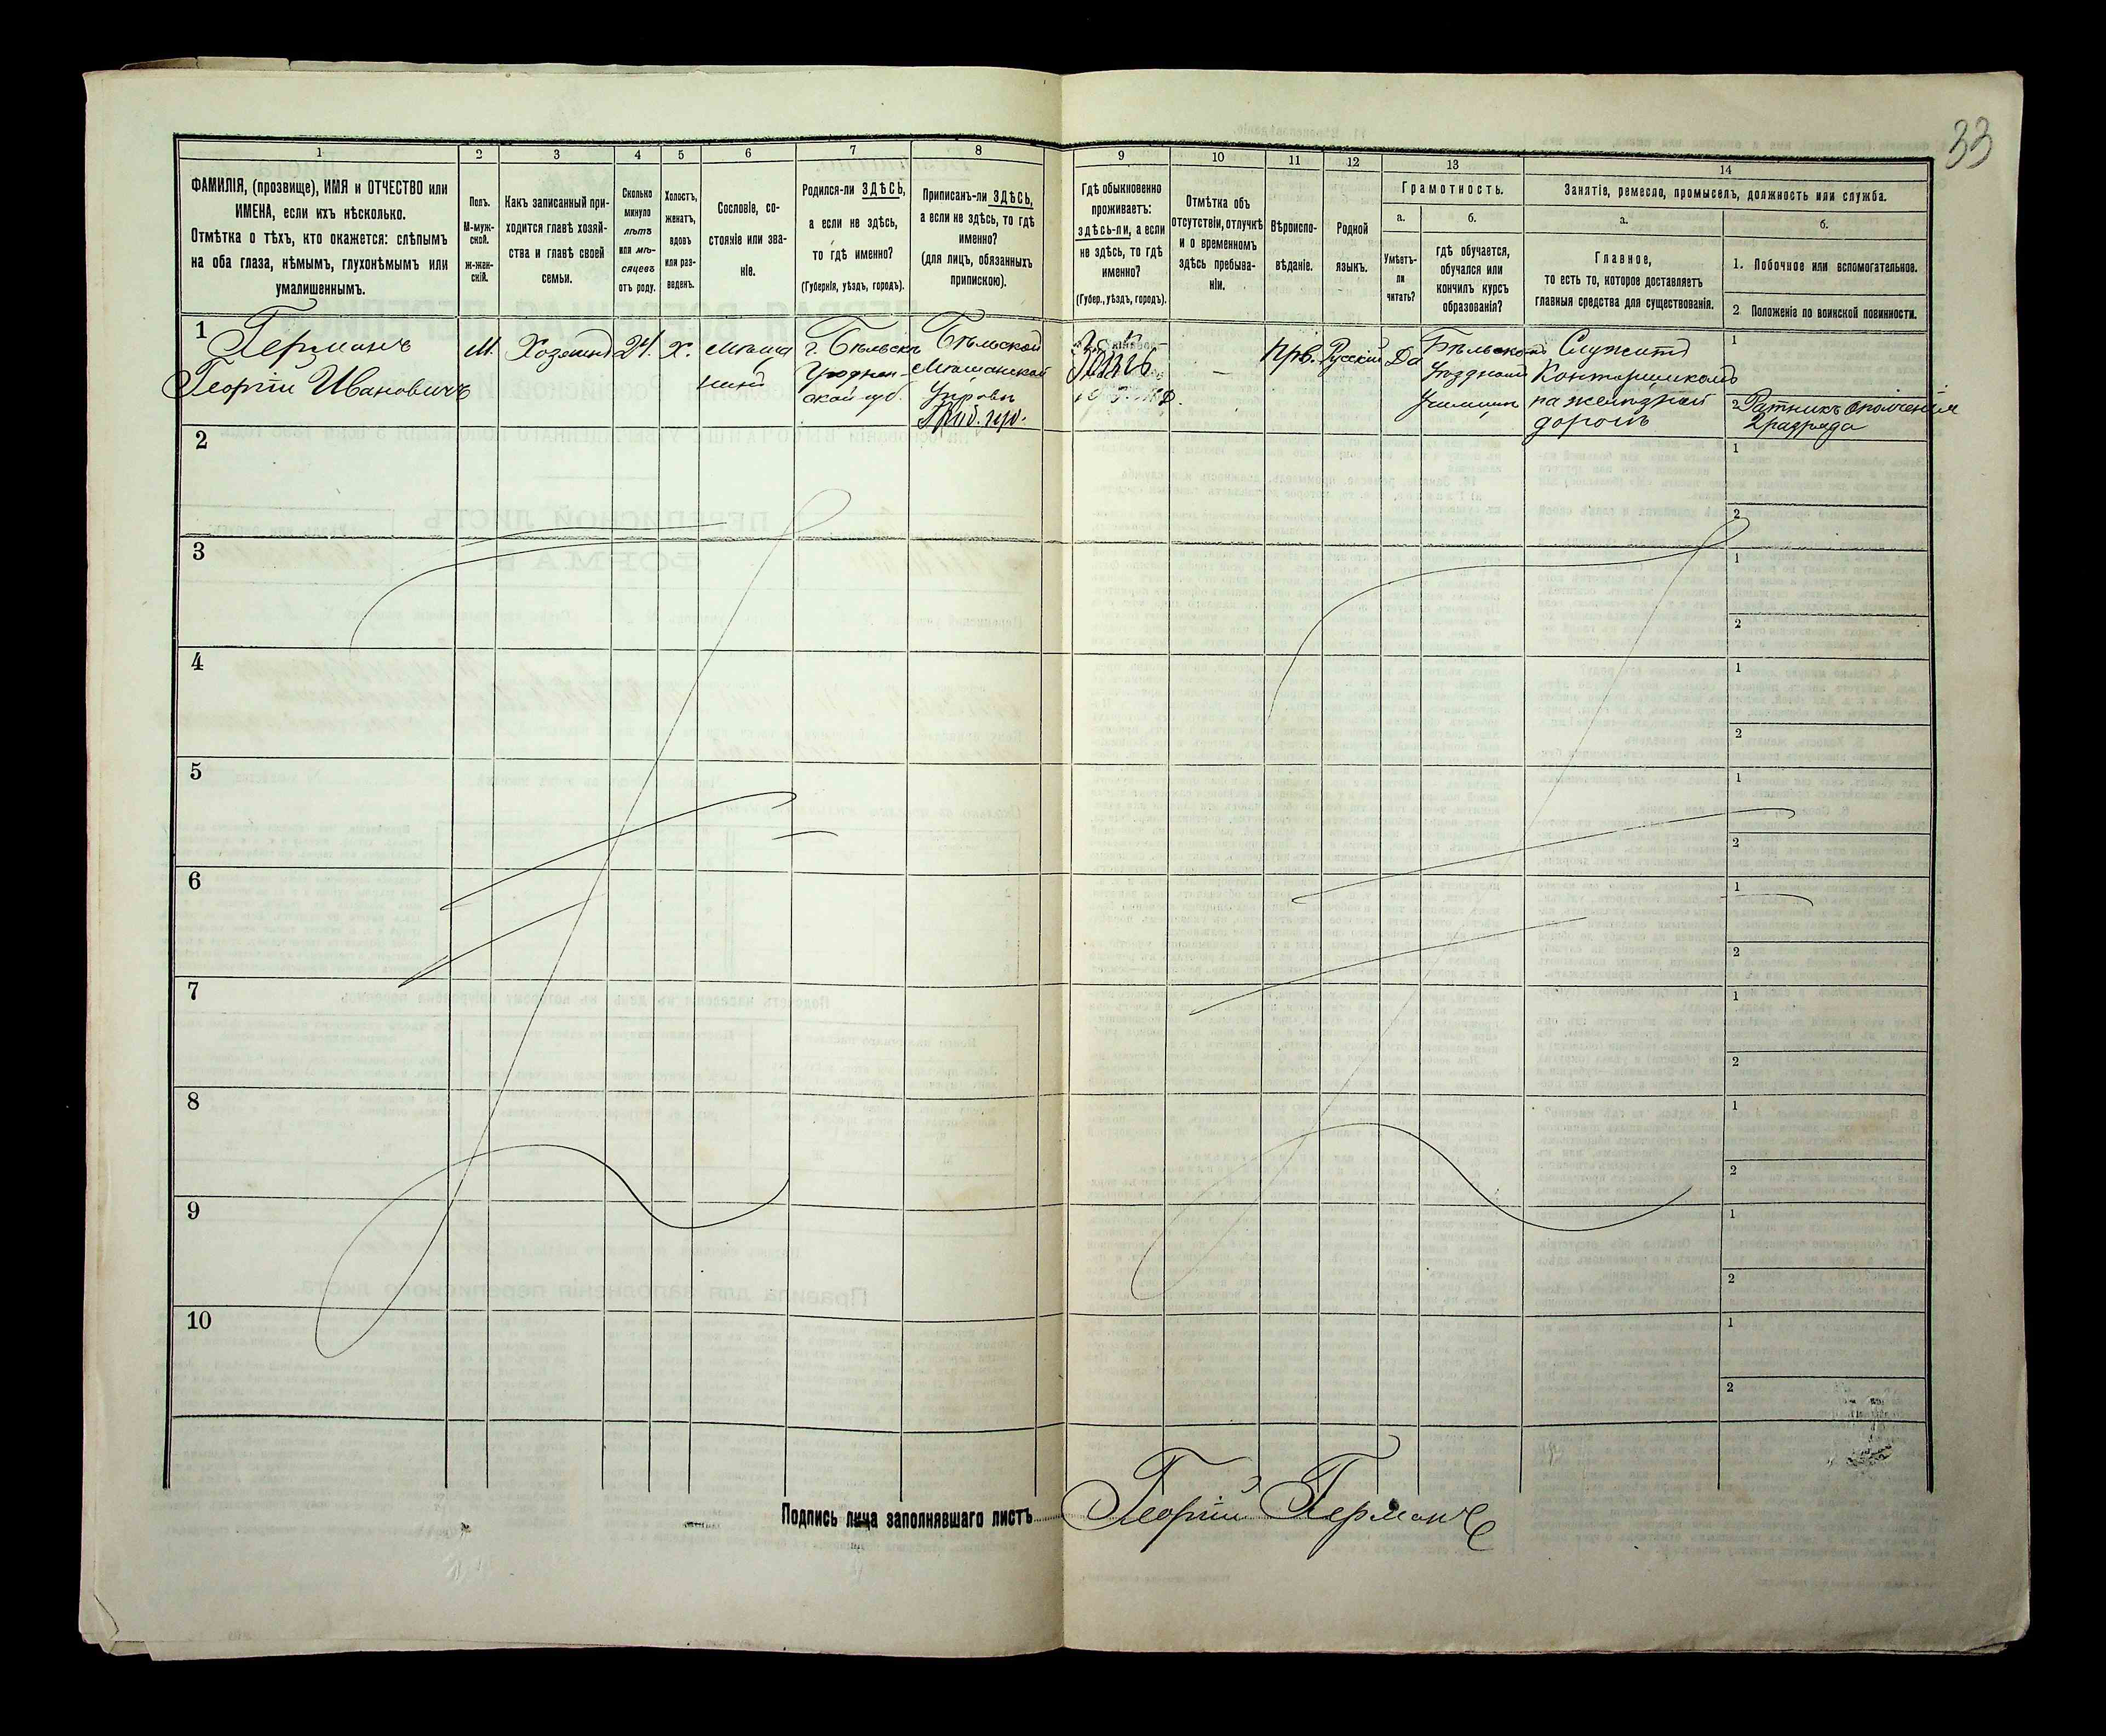 33
1
2
3
4
5
6
7
8
9
10
11
12
13
14
ФАМИЛІЯ, (прозвище), ИМЯ и ОТЧЕСТВО или
ИМЕНА, если ихъ нѣсколько.
Отмѣтка о тѣхъ, кто окажется: слѣпымъ
на оба глаза, нѣмымъ, глухонѣмымъ или
умалишеннымъ.
Полъ.
М-муж-
ской.
ж-жен-
скій.
Какъ записанный при-
ходится главѣ хозяй-
ства и главѣ своей
семьи.
Сколько
минуло
лѣтъ
или мѣ-
сяцевъ
отъ роду.
Холостъ,
женатъ,
вдовъ
или раз-
веденъ.
Сословіе, со-
стояніе или зва-
ніе.
Родился-ли ЗДѢСЬ,
а если не здѣсь,
то гдѣ именно?
(Губернія, уѣздъ, городъ).
Приписанъ-ли ЗДѢСЬ,
а если не здѣсь, то гдѣ
именно?
(для лицъ, обязанныхъ
припискою).
Гдѣ обыкновенно
проживаетъ:
здѣсь-ли, а если
не здѣсь, то гдѣ
именно?
(Губер., уѣздъ, городъ).
Отмѣтка объ
отсутствіи, отлучкѣ
и о временномъ
здѣсь пребыва-
ніи.
Вѣроиспо-
вѣданіе.
Родной
языкъ.
Грамотность.
а.
Умѣетъ-
ли
читать?
б.
гдѣ обучается,
обучался или
кончилъ курсъ
образованія?
Занятіе, ремесло, промыселъ, должность или служба.
а.
Главное,
то есть то, которое доставляетъ
главныя средства для существованія.
б.
1. Побочное или вспомогательное.
2 Положенія по воинской повинности.
1
Германъ
Георгій Ивановичъ
М.
Хозяинъ
24.
Х.
Мѣща
нинъ
г. Бѣльскъ
Гроднен-
ской губ.
Бѣльской
Мѣщанской
Управы
Прв.
Русскій
Да
Бѣльскомъ
Уѣздномъ
Училищѣ
Служитъ
Конторщикомъ
на желѣзной
дорогѣ
1
2 Ратникъ ополченія
2 разряда
2
1
2
3
1
2
4
1
2
5
1
2
6
1
2
7
1
2
8
1
2
9
1
2
10
1
2
Подпись лица заполнявшаго листъ
Георгій Германъ